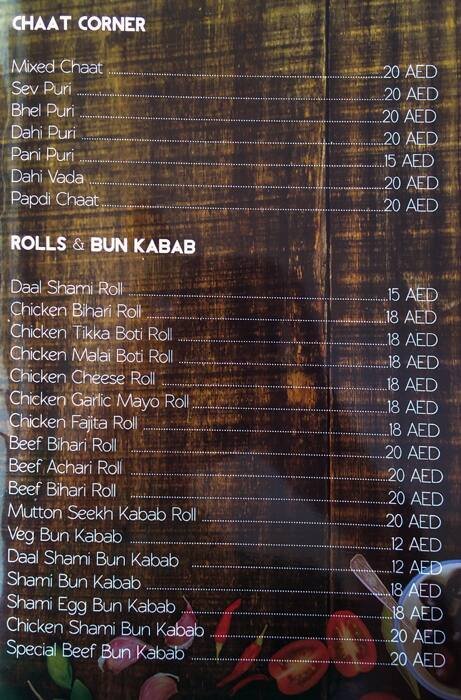 CHAAT CORNER
Mixed Chaat 20 AED
Sev Puri 20 AED
Bhel Puri 20 AED
Dahi Puri 20 AED
Pani Puri 15 AED
Dahi Vada 20 AED
Papdi Chaat 20 AED
ROLLS & BUN KABAB
Daal Shami Roll 15 AED
Chicken Bihari Roll 18 AED
Chicken Tikka Boti Roll 18 AED
Chicken Malai Boti Roll 18 AED
Chicken Cheese Roll 18 AED
Chicken Garlic Mayo Roll 18 AED
Chicken Fajita Roll 18 AED
Beef Bihari Roll 20 AED
Beef Achari Roll 20 AED
Beef Bihari Roll 20 AED
Mutton Seekh Kabab Roll 20 AED
Veg Bun Kabab 12 AED
Daal Shami Bun Kabab 12 AED
Shami Bun Kabab 18 AED
Shami Egg Bun Kabab 18 AED
Chicken Shami Bun Kabab 20 AED
Special Beef Bun Kabab 20 AED